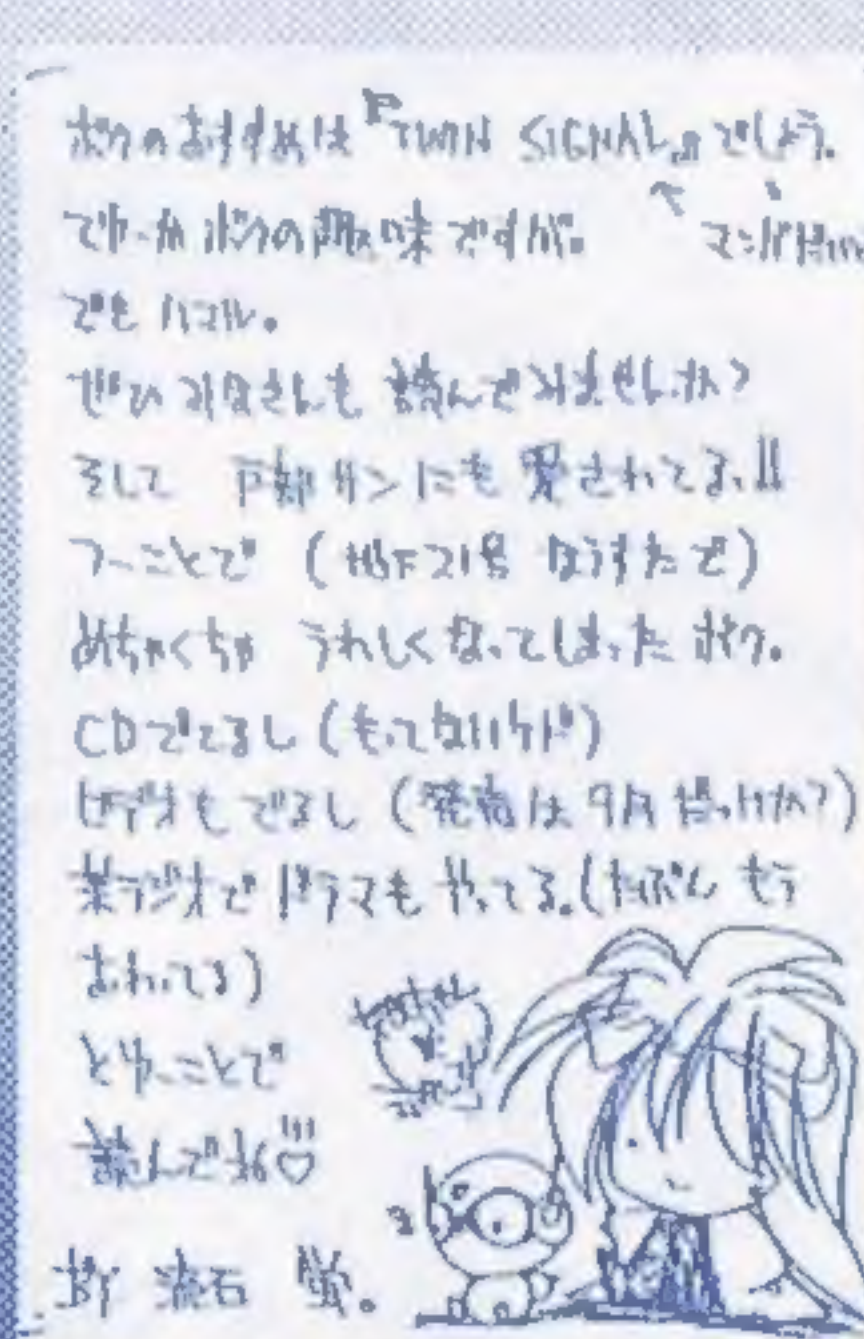 ボクのおすすめは『TWIN SIGNAL』でしょう。
でゆーかボクの趣味ですが。
マンガ
でも
ぜひみなさんも 読んでみませんか?
そして 戸部サンにも 愛されてる、!!
つーことで (地下21号
めちゃくちゃ うれしくなってしまった ボク。
CDでてるし (もってないケド)
ビデオもでるし (発売は 9月 だっけか?)
某ラジオで ドラマも やってる。(たぶん もう
おわってる)
とゆーことで
読んでネ♡
BY 流石 蛍。